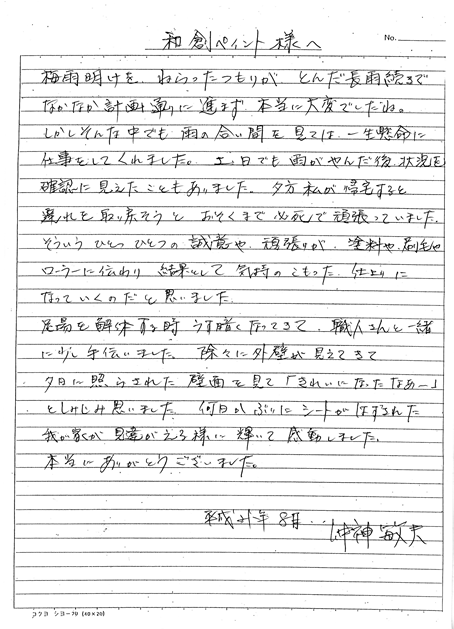 和創ペイント様へ
No.
梅雨明けを、ねらったつもりが、とんだ長雨続きで
なかなか計画通りに進まず、本当に大変でしたね。
しかしそんな中でも雨の合い間を見ては、一生懸命に
仕事をしてくれました。土、日でも雨がやんだ後、状況を
確認に見えたこともありました。夕方私が帰宅すると
遅れを取り戻そうとおそくまで必死で頑張っていました。
そういうひとつひとつの誠意や、頑張りが、塗料や、刷毛や
ローラーに伝わり結果として気持のこもった仕上りに
なっていくのだと思いました。
足場を解体する時うす暗くなってきて、職人さんと一緒
に少し手伝いました。除々に外壁が見えてきて
夕日に照らされた壁面を見て「きれいになったなあー」
としみじみ思いました。何日かぶりにシートがはずされた
我が家が見違がえる様に輝いて感動しました。
本当にありがとうございました。
平成21年8月
仲神敏夫
コクヨ シヨ-70 (40×20)